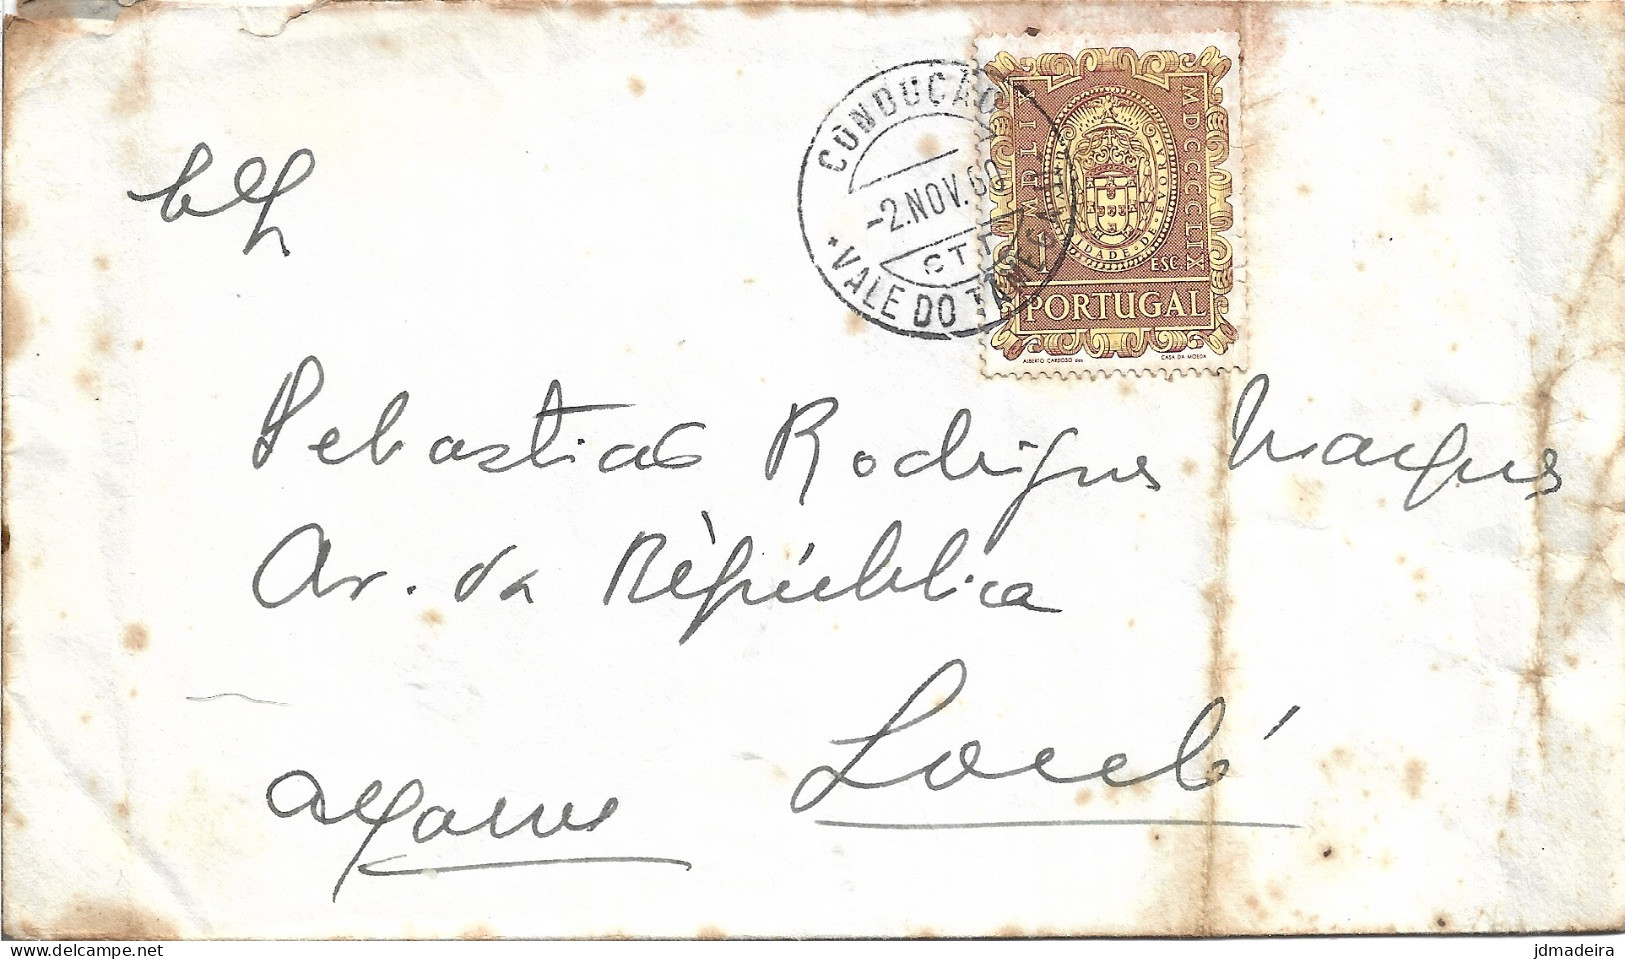 CONDUÇÃO
-2.NOV.60
* VALE DO TÂMEGA
MDLIX
MDCCCCLIX
VNIVERSIDADE · DE · EVORA
1 ESC.
PORTUGAL
ALBERTO CARDOSO des
CASA DA MOEDA
Sebastião Rodrigues Marques
Av. da Rèpública
Loulé
Algarve
delcampe.net
jdmadeira